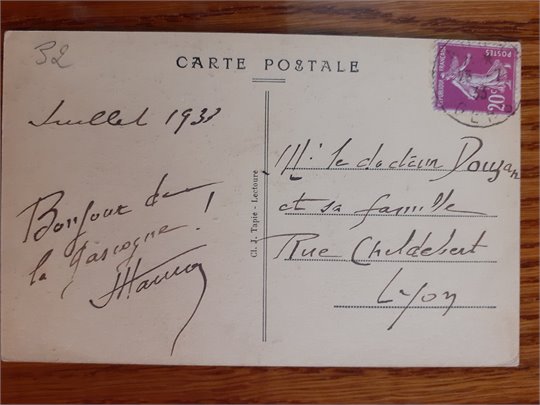 32
CARTE POSTALE
RÉPUBLIQUE FRANÇAISE
POSTES
20c
Juillet 1933
Bonjour de
la Gascogne !
Mr le docteur Douzan
et sa famille
Rue Childebert
Lyon
Cl. J. Tapie - Lectoure